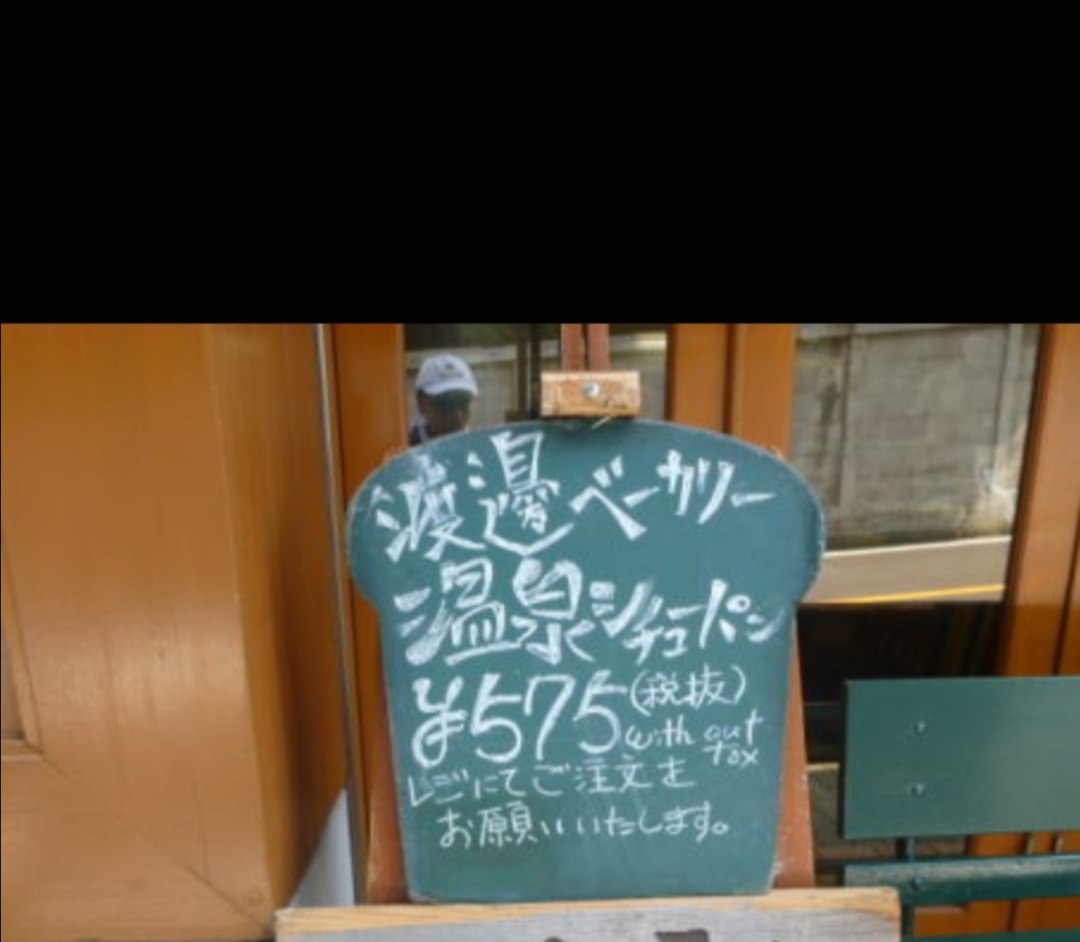 渡邊ベーカリー
温泉シチューパン
¥575(税抜)
with out tax
レジにてご注文を
お願いいたします。